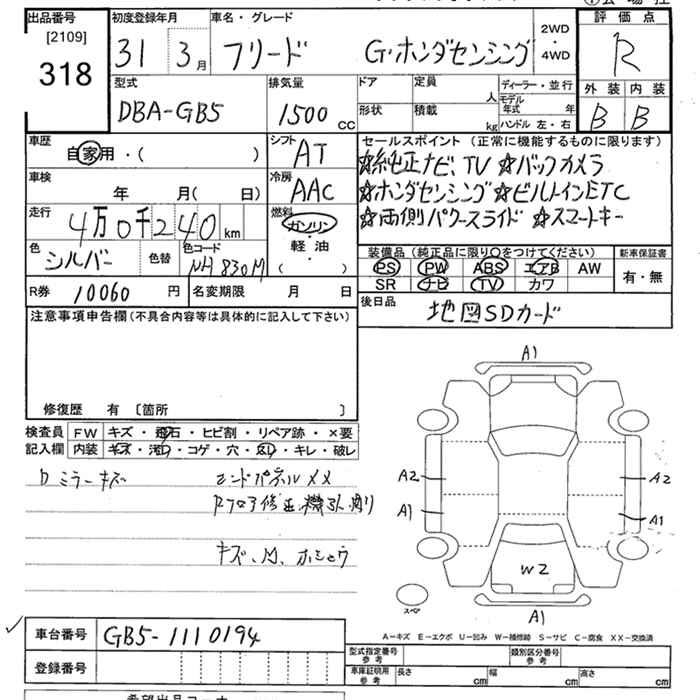 出品番号
[2109]
318
初度登録年月
31 3月
車名・グレード
フリード G・ホンダセンシング
2WD
・
4WD
評価点
R
外装 内装
B B
型式
DBA-GB5
排気量
1500 CC
ドア
形状
定員 人
積載 kg
ディーラー・並行
モデル年式 年
ハンドル 左・右
車歴
自家用・( )
シフト
AT
車検
年 月( 日)
冷房
AAC
走行
4万0千240km
燃料
ガソリン・
軽油・
( )
色
シルバー
色替
色コード
NH830M
セールスポイント(正常に機能するものに限ります)
☆純正ナビ、TV ☆バックカメラ
☆ホンダセンシング ☆ビルトインETC
☆両側パワースライド ☆スマートキー
装備品(純正品に限り○をつけてください)
PS PW ABS エアB AW
SR ナビ TV カワ
新車保証書
有・無
R券 10060円
名変期限 月 日
後日品
地図SDカード
注意事項申告欄(不具合内容等は具体的に記入して下さい)
修復歴 有 〔箇所 〕
検査員
記入欄
FW キズ・飛石・ヒビ割・リペア跡・×要
内装 キズ・汚れ・コゲ・穴・スレ・キレ・破レ
ミラーキズ
エンドパネル
修正機
キズ、
A1
A2
A1
A2
A1
W2
A1
スペア
A−キズ E−エクボ U−凹み W−補修跡 S−サビ C−腐食 XX−交換済
車台番号
GB5-1110194
登録番号
型式指定番号
参考
類別区分番号
参考
車庫証明用
参考
長さ cm
幅 cm
高さ cm